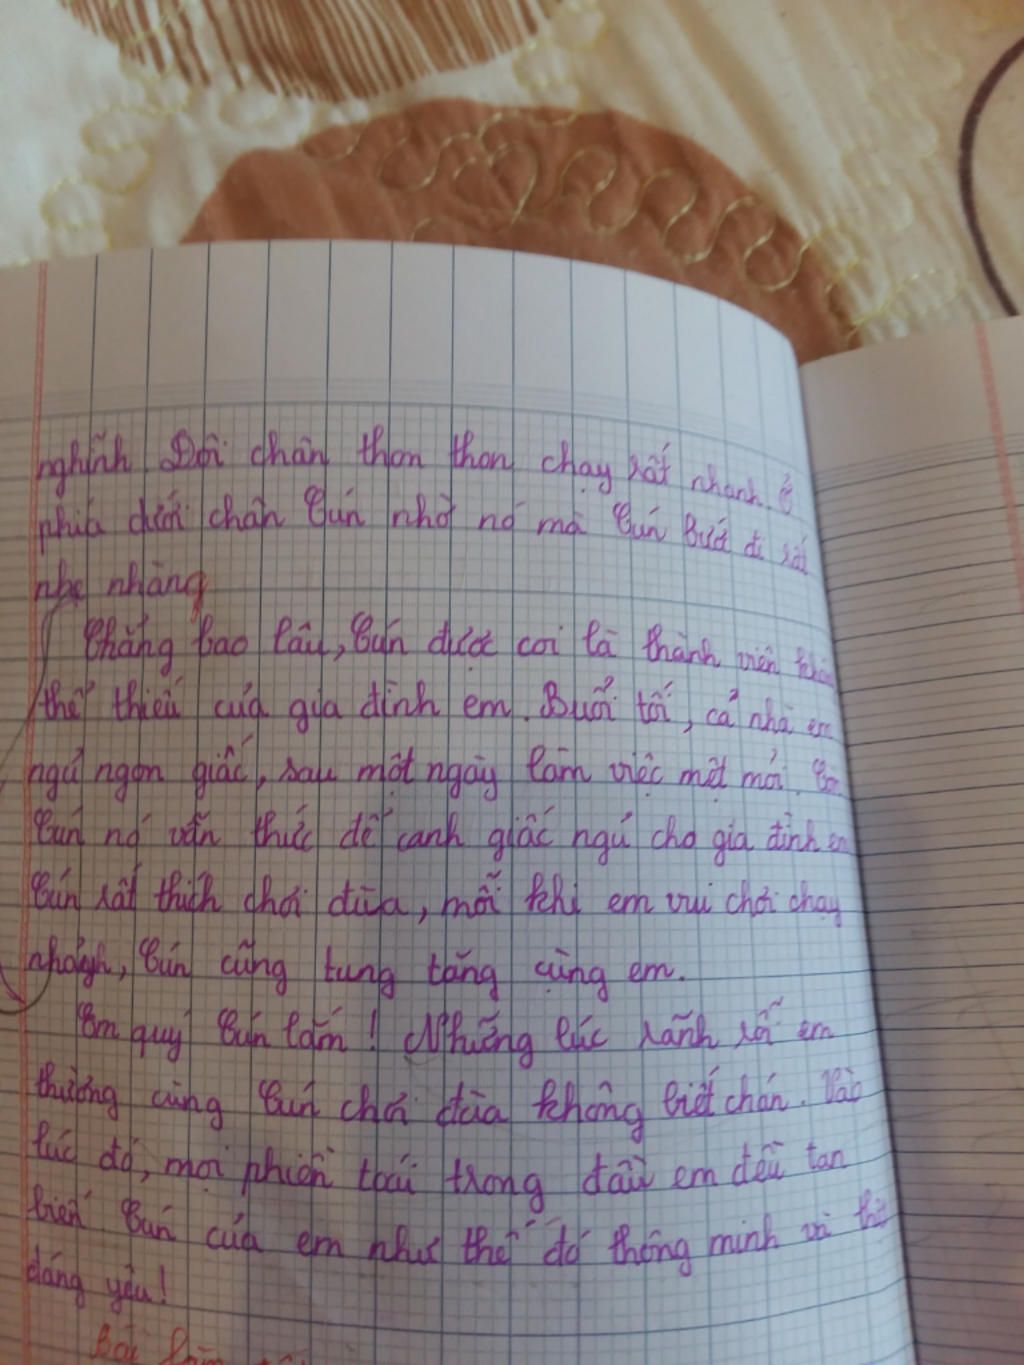 nghĩnh Đôi chân thon thon chạy rất nhanh. ở
phía dưới chân Bún nhờ nó mà Bún bướ đi rất
nhẹ nhàng
Chẳng bao lâu, Bún được coi là thành viên không
thể thiếu của gia đình em. Buổi tối, cả nhà em
ngủ ngon giấc, sau một ngày làm việc mệt mỏi. Còn
Bún nó vẫn thức để canh giấc ngủ cho gia đình em
Bún rất thích chơi đùa, mỗi khi em vui chơi chạy
Bún cũng tung tăng cùng em.
Em quý Bún lắm! Những lúc rãnh rỗi em
thường cùng Bún chơi đùa không biết chán. Vào
lúc đó, mọi phiền toái trong đầu em đều tan
biến Bún của em như thế đó thông minh và thật
đáng yêu!
Bài làm